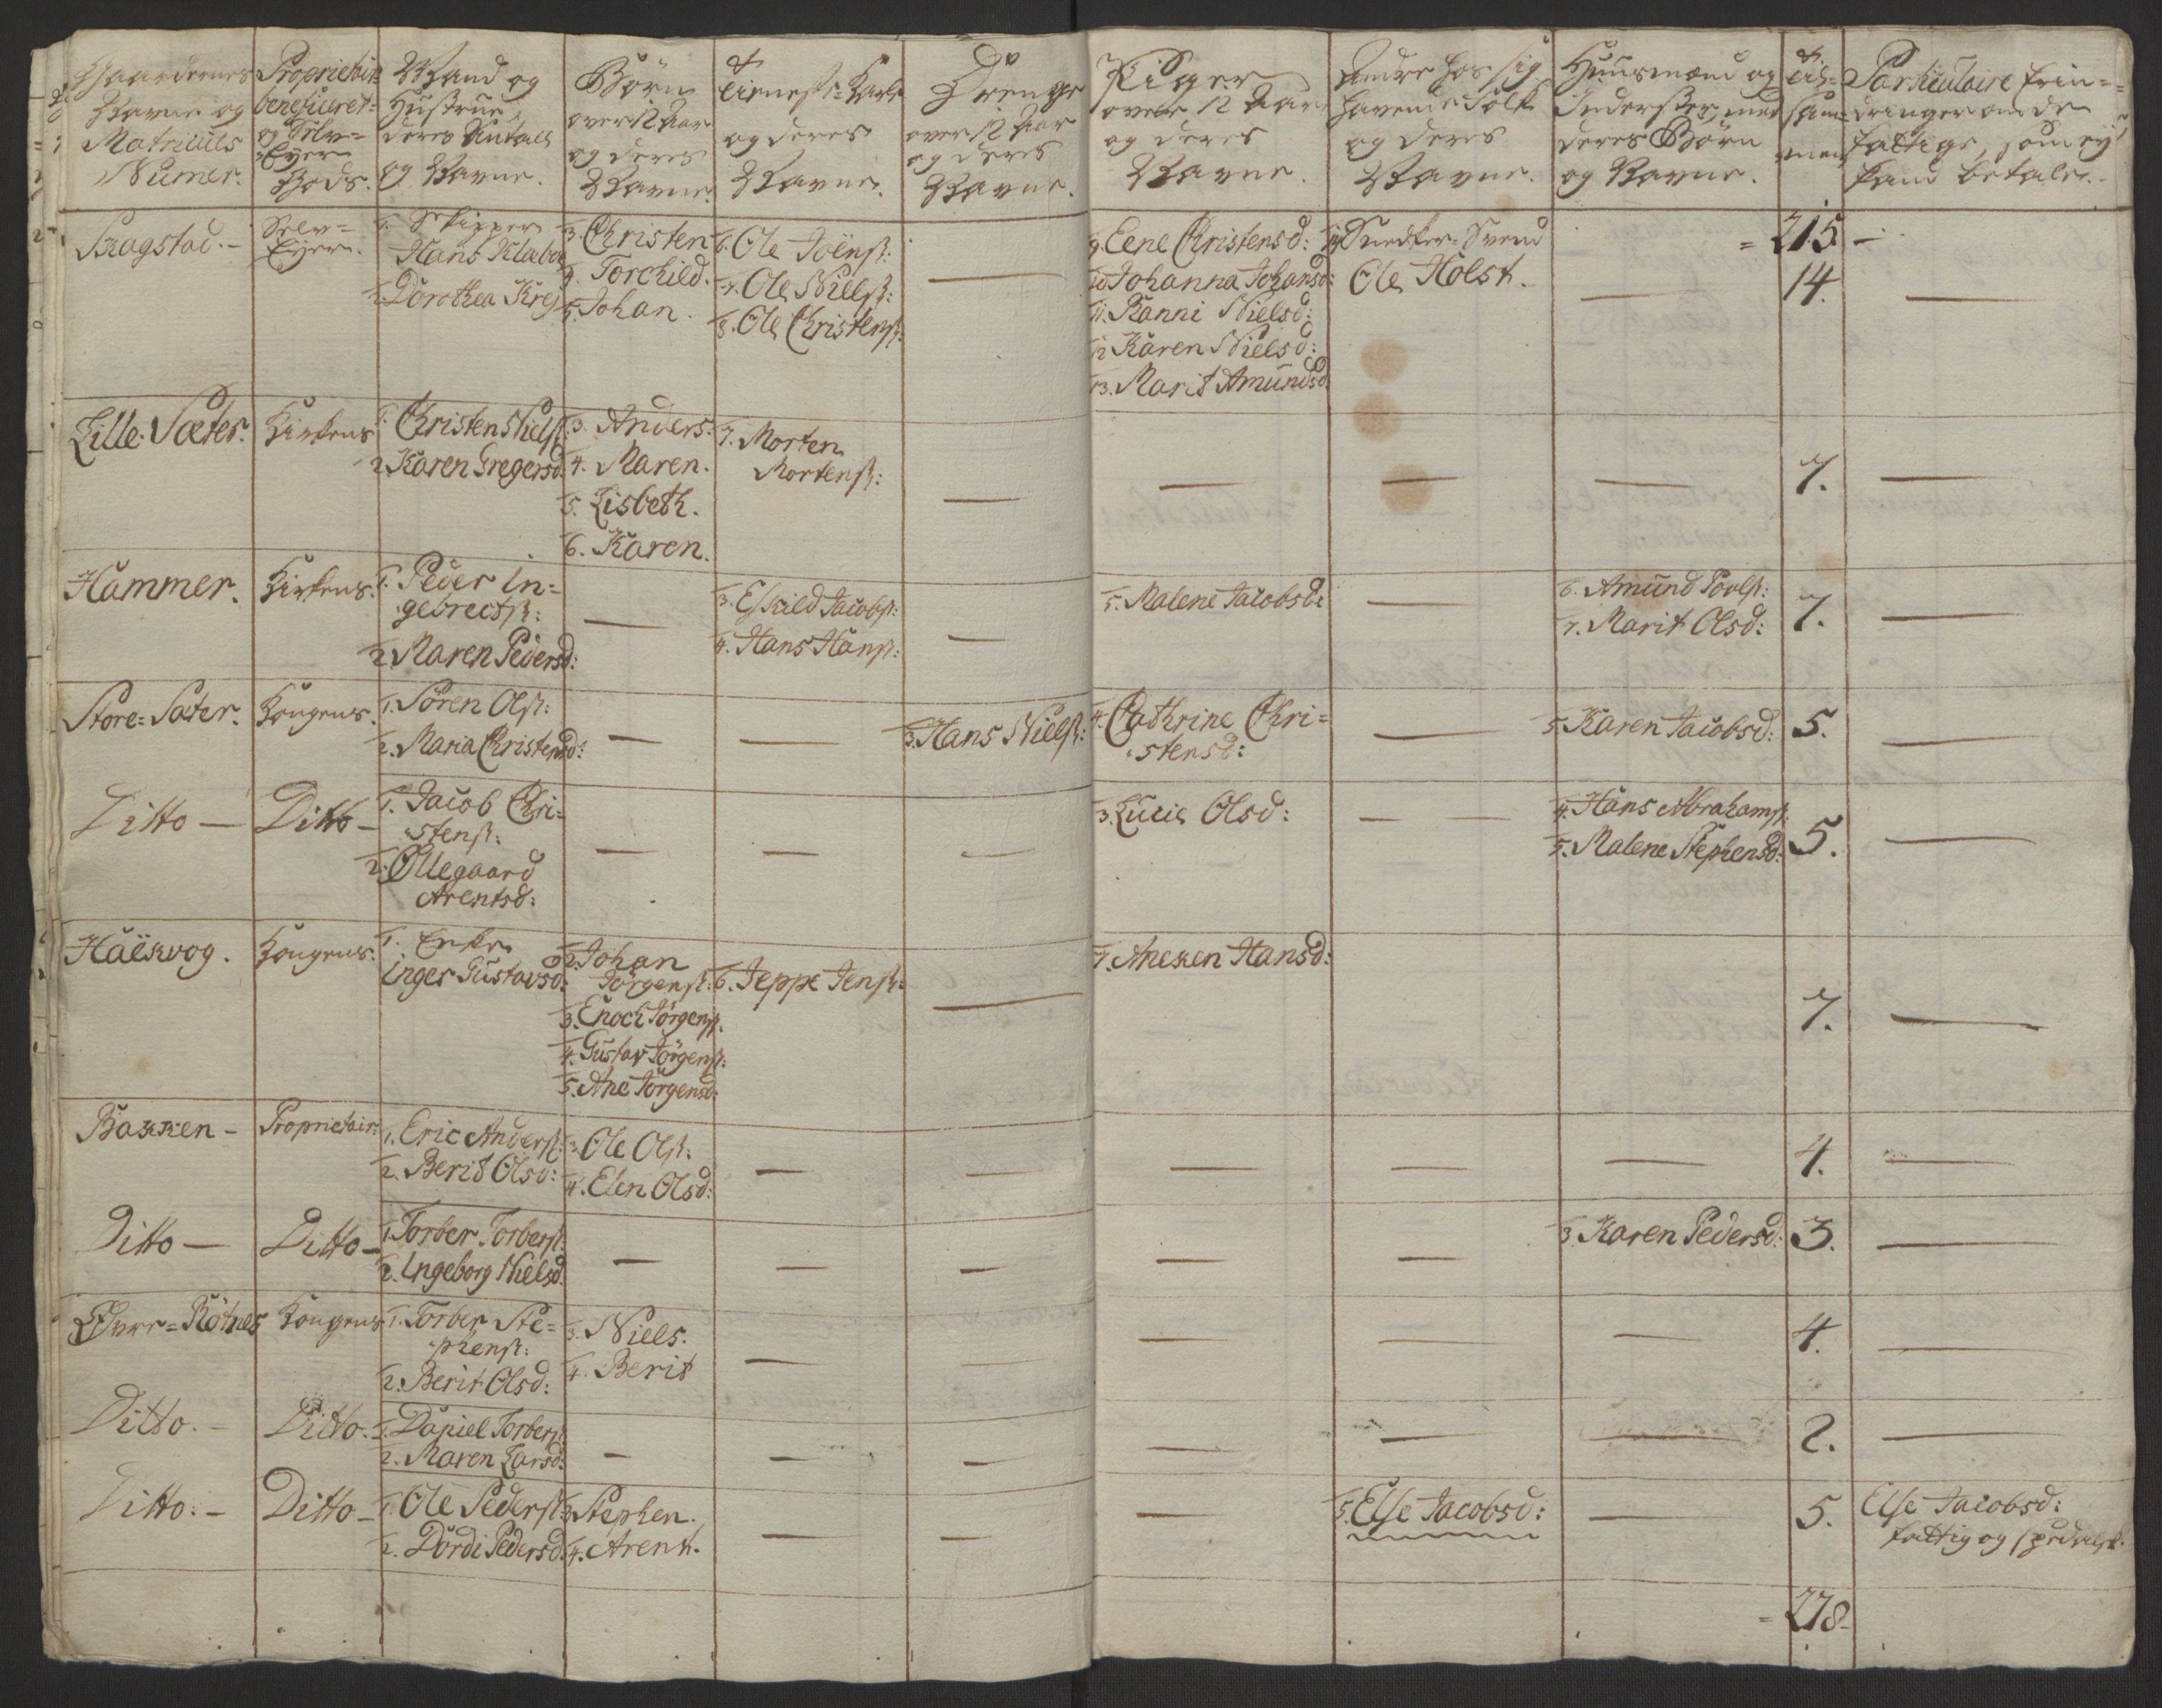 Gaardernes
Navne og
Matriculs
Numer.
Proprietair
beneficeret-
og Selv-
Eyer
Gods.
Mand og
Hustrue,
deres Antall
og Navne.
Børn
over 12 Aar
og deres
Navne.
Tieneste-Karle
og deres
Navne.
Drenge
over 12 Aar
og deres
Navne.
Piger
over 12 Aar
og deres
Navne.
Andre hos sig
havende Folk
og deres
Navne.
Huusmænd og
Inderster, med
deres Børn
og Navne.
Til-
sam-
men
Particulaire Erin-
dringer om de
fattige, som ey
kand betale.
= 215 -
Skagstad. -
Selv-
Eyer.
1. Skipper
Hans Klabo
2. Dorothea Krej
3. Christen
4. Torchild.
5. Johan.
6. Ole Joënsß:
7. Ole Nielsß:
8. Ole Christensß:
9. Eene Christensd:
10. Johanna Johansd:
11. Ranni Nielsd:
12 Karen Nielsd:
13. Marit Amundsd:
14 Snedker-Svend
Ole Holst.
14.
Lille-Sæter.
Kirkens
1. Christen Nielsß:
2. Karen Gregersd:
3. Anders.
4. Maren.
5. Lisbeth.
6. Karen.
7. Morten
Mortensß:
7.
Hammer.
Kirkens.
1. Peder In=
gebrectsß:
2. Maren Pedersd:
3. Eskild Jacobsß:
4. Hans Hansß:
5. Malene Jacobsd:
6. Amund Povlsß:
7. Marit Olsd:
7.
Store=Sæter.
Kongens.
1. Sören Olsß:
2. Maria Christensd:
3. Hans Nielsß:
4. Cathrine Chri=
stensd:
5. Karen Jacobsd:
5.
Ditto -
Ditto -
1. Jacob Chri=
stensß:
2. Øllegaard
Arentsd:
3. Lucie Olsd:
4. Hans Abrahamsß:
5. Malene Stephensd:
5.
Haëkvog.
Kongens.
1. Enke
Inger Gustavsd:
2. Johan
Jörgensß:
3. Enoch Jörgensß:
4. Gustav Jörgensß:
5. Ane Jörgensd:
6. Jeppe Jensß:
7. Aneken Hansd:
7.
Bakken -
Proprietair:
1. Eric Andersß:
2. Berit Olsd:
3. Ole Olsß:
4. Elen Olsd:
4.
Ditto -
Ditto -
1. Torber Torbersß:
2. Ingeborg Nielsd:
3. Karen Pedersd:
3.
Øvre=Rötnes
Kongens
1. Torber Ste=
phensß:
2. Berit Olsd:
3. Niels.
4. Berit
4.
Ditto. -
Ditto.
1. Daniel Torbersß:
2. Maren Larsd:
2.
Ditto. -
Ditto -
1. Ole Pedersß:
2. Dordi Pedersd:
3. Stephen.
4. Arent.
5. Else Jacobsd:
5.
Else Jacobsd:
fattig og spedalsk.
= 278-